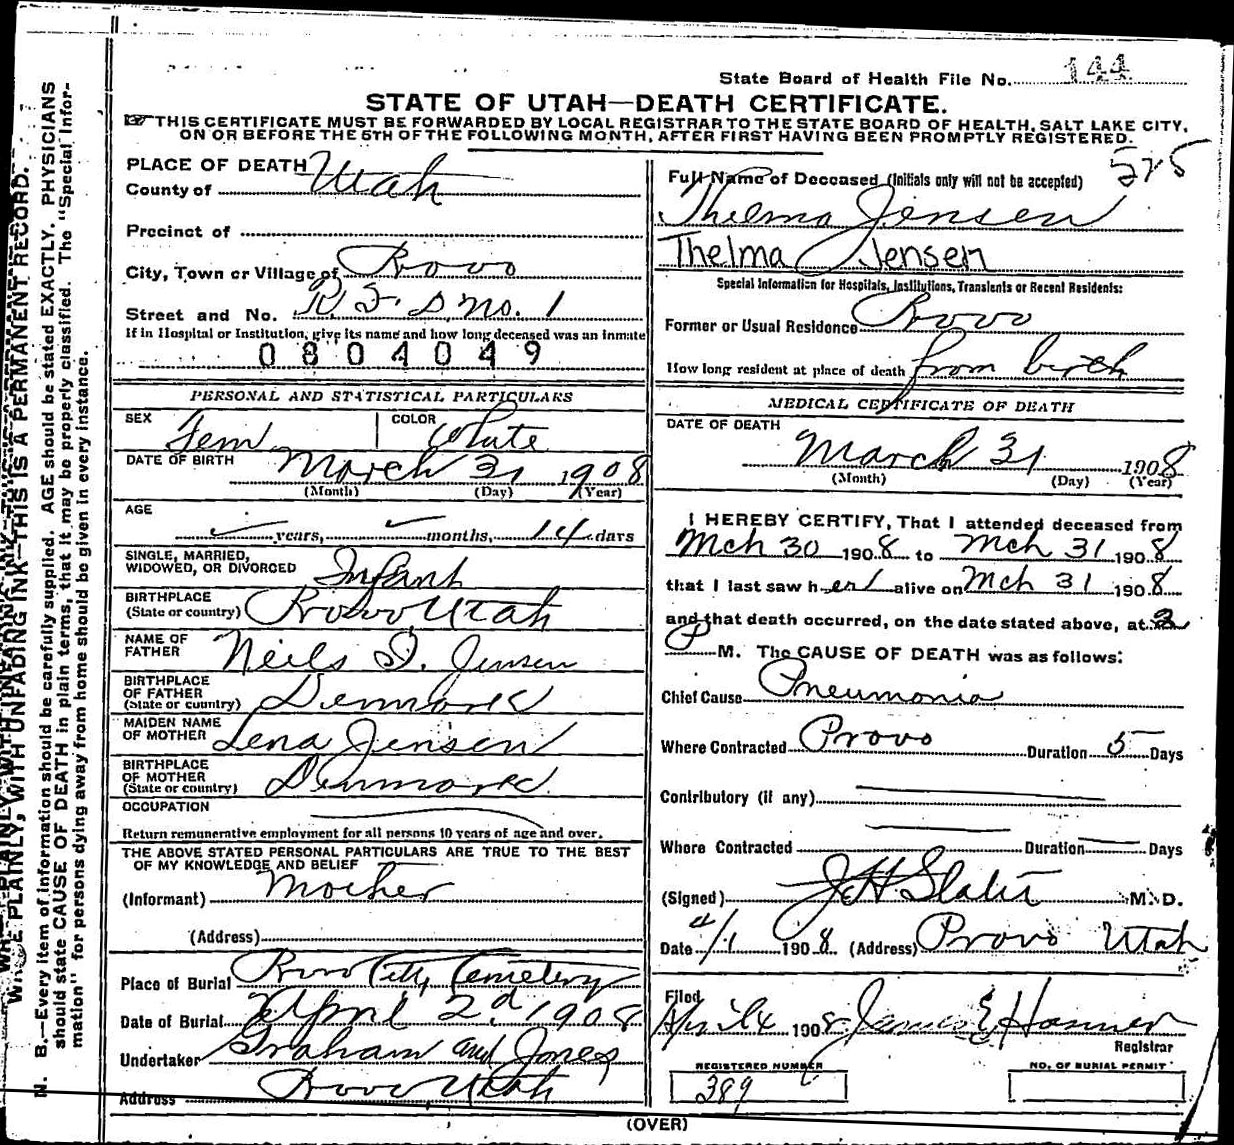 State Board of Health File No. 144
STATE OF UTAH—DEATH CERTIFICATE.
☞THIS CERTIFICATE MUST BE FORWARDED BY LOCAL REGISTRAR TO THE STATE BOARD OF HEALTH, SALT LAKE CITY,
ON OR BEFORE THE 5TH OF THE FOLLOWING MONTH, AFTER FIRST HAVING BEEN PROMPTLY REGISTERED.
PLACE OF DEATH
County of Utah
Precinct of
City, Town or Village of Provo
Street and No. R.F.D. No. 1
If in Hospital or Institution, give its name and how long deceased was an inmate
0804049
PERSONAL AND STATISTICAL PARTICULARS
SEX Fem COLOR White
DATE OF BIRTH March 31 1908
(Month) (Day) (Year)
AGE
years, months, 14 days
SINGLE, MARRIED,
WIDOWED, OR DIVORCED Infant
BIRTHPLACE
(State or country) Provo, Utah
NAME OF
FATHER Neils D. Jensen
BIRTHPLACE
OF FATHER
(State or country) Denmark
MAIDEN NAME
OF MOTHER Lena Jensen
BIRTHPLACE
OF MOTHER
(State or country) Denmark
OCCUPATION
Return remunerative employment for all persons 10 years of age and over.
THE ABOVE STATED PERSONAL PARTICULARS ARE TRUE TO THE BEST
OF MY KNOWLEDGE AND BELIEF
(Informant) Mother
(Address)
Place of Burial Provo City Cemetery
Date of Burial April 2nd 1908
Undertaker Graham and Jones
Address Provo, Utah
525
Full Name of Deceased (Initials only will not be accepted)
Thelma Jensen
Thelma Jensen
Special Information for Hospitals, Institutions, Transients or Recent Residents:
Former or Usual Residence Provo
How long resident at place of death from birth
MEDICAL CERTIFICATE OF DEATH
DATE OF DEATH
March 31 1908
(Month) (Day) (Year)
I HEREBY CERTIFY, That I attended deceased from
Mch 30 1908 to Mch 31 1908
that I last saw her alive on Mch 31 1908
and that death occurred, on the date stated above, at 2
P M. The CAUSE OF DEATH was as follows:
Chief Cause Pneumonia
Where Contracted Provo Duration 5 Days
Contributory (if any)
Where Contracted Duration Days
(Signed) J H Slater M.D.
Date 4/1 1908 (Address) Provo Utah
Filed
April 4 1908 James E Hosmer
Registrar
REGISTERED NUMBER
389
NO. OF BURIAL PERMIT
(OVER)
WRITE PLAINLY, WITH UNFADING INK—THIS IS A PERMANENT RECORD.
N. B.—Every item of information should be carefully supplied. AGE should be stated EXACTLY. PHYSICIANS
should state CAUSE OF DEATH in plain terms, that it may be properly classified. The "Special Infor-
mation" for persons dying away from home should be given in every instance.